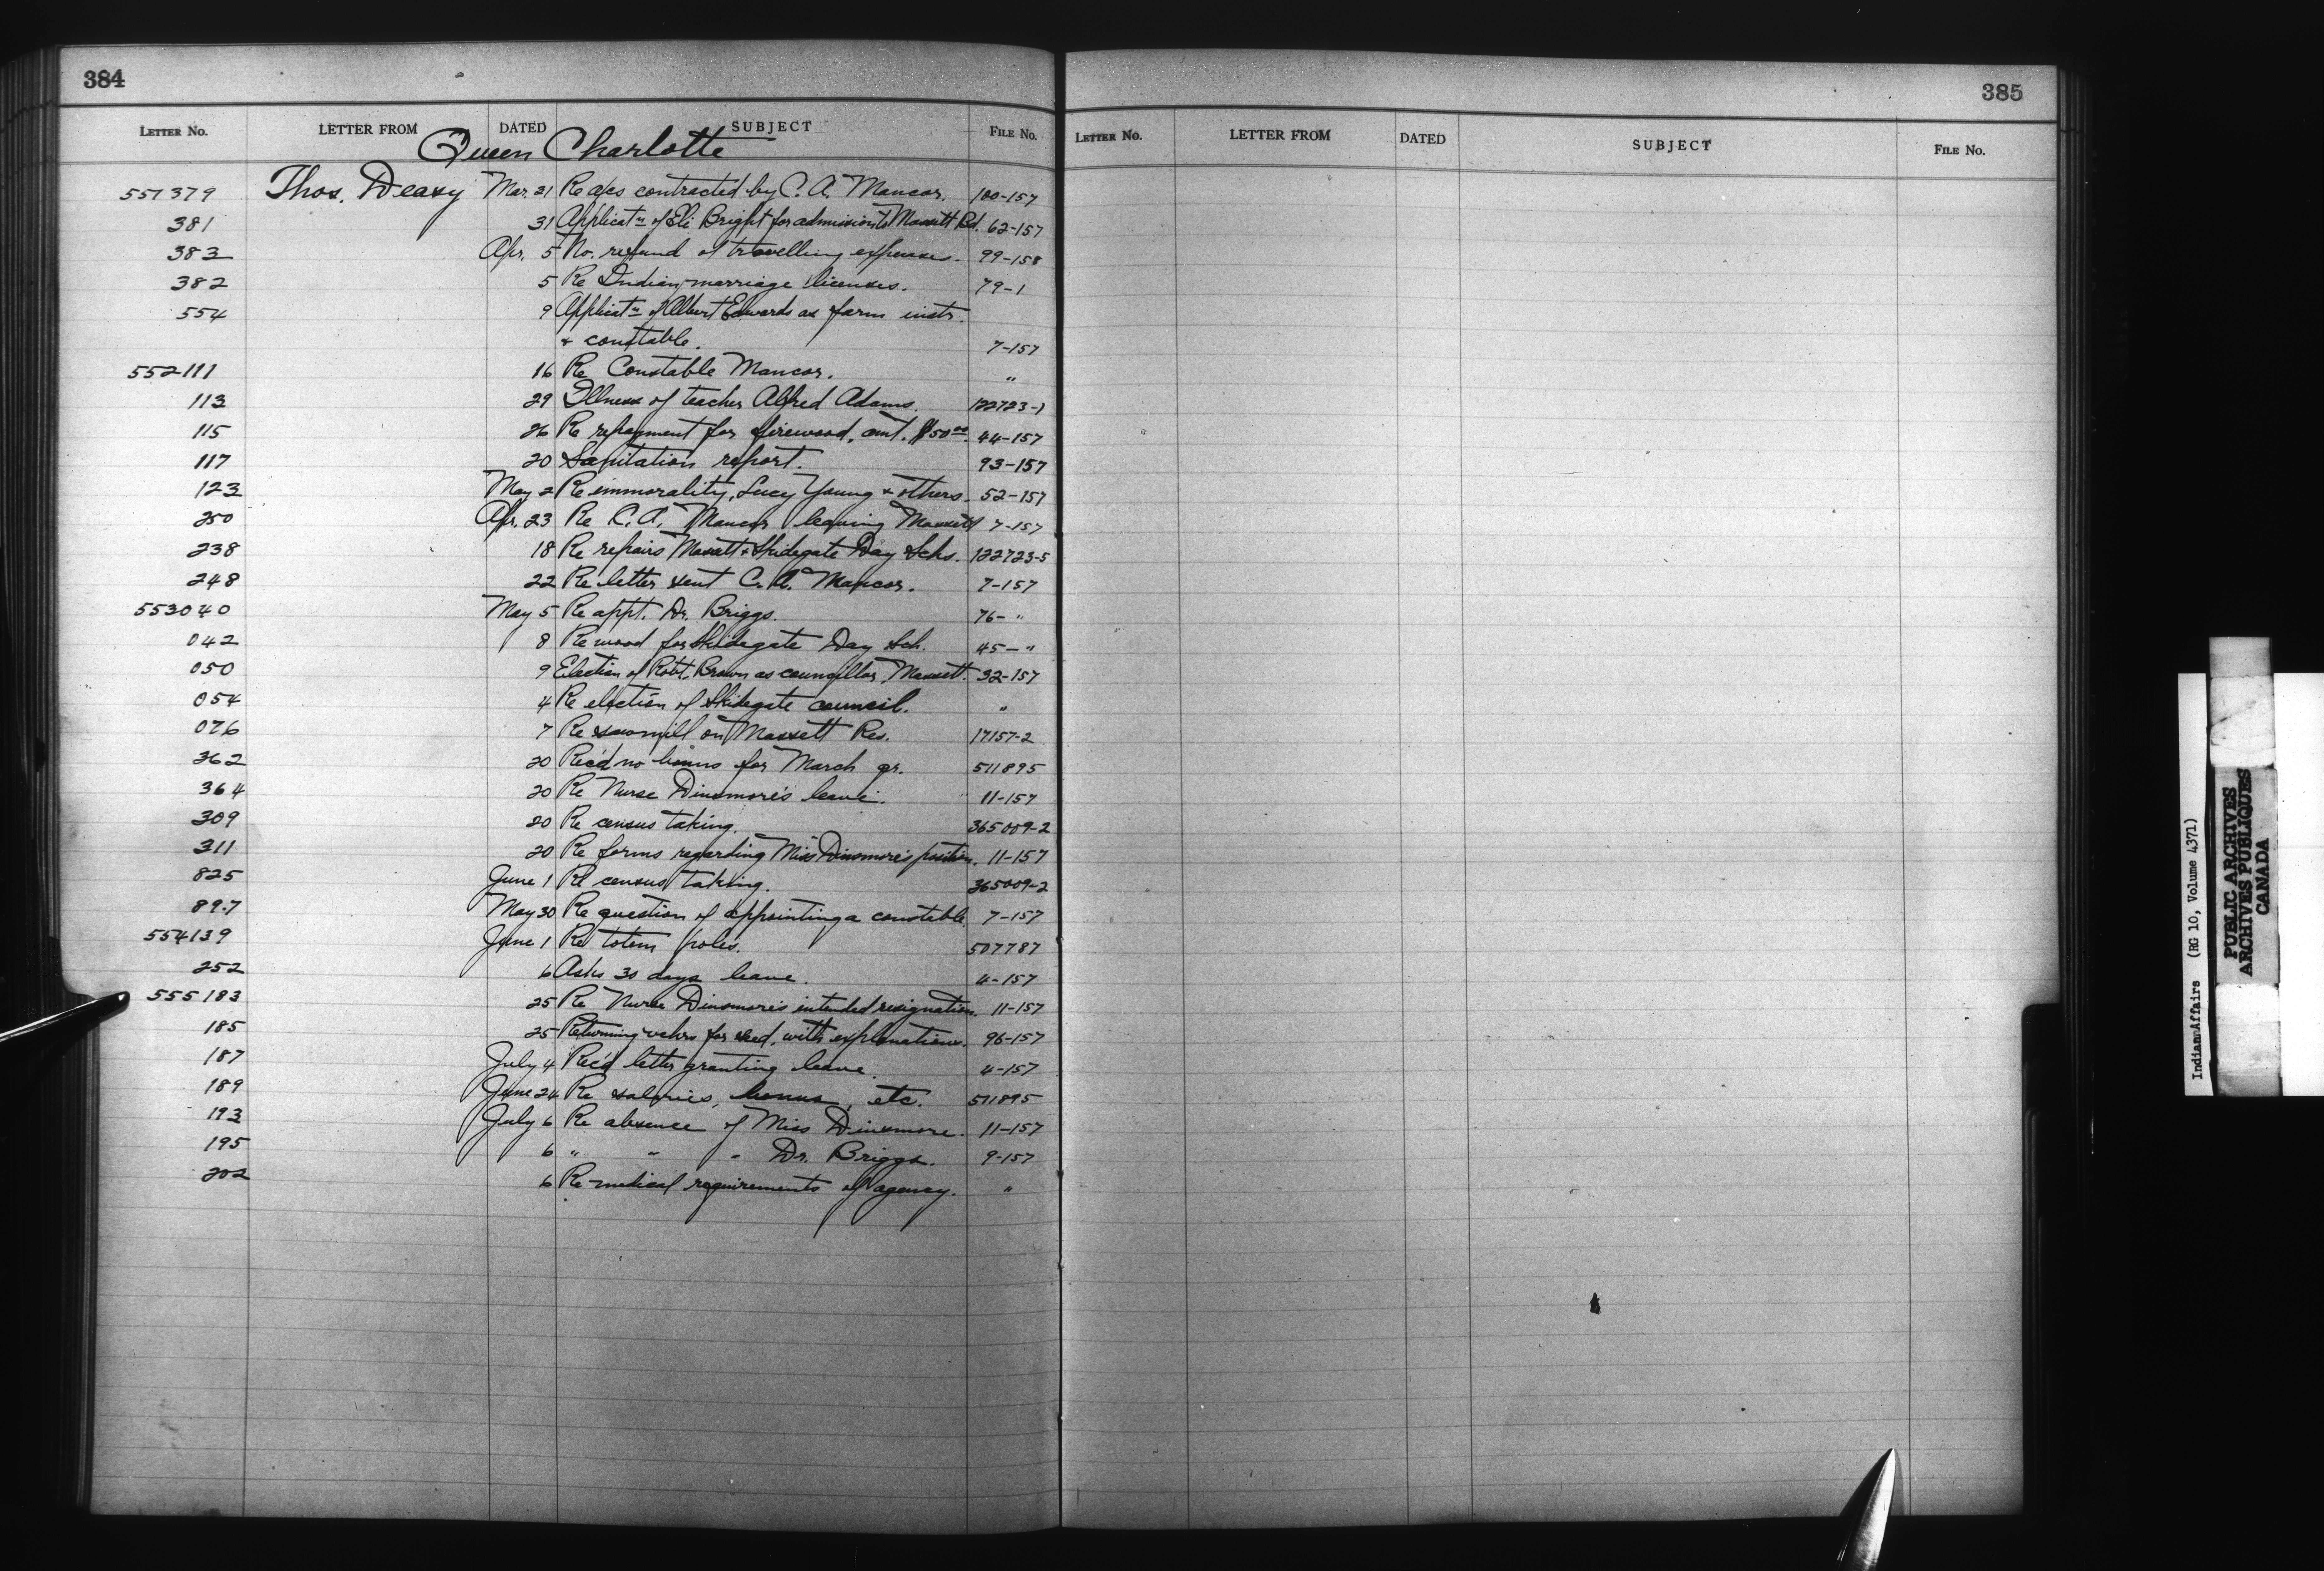 384
LETTER NO. LETTER FROM DATED SUBJECT FILE NO.
Queen Charlotte
551379 Thos. Deasy Mar. 21 Re a/cs contracted by C. A. Mancor. 100-157
381 31 Applicatn of Eli Bright for admission to Massett Bd. 62-157
383 Apr. 5 No. refund of travelling expenses. 99-158
382 5 Re Indian marriage licenses. 79-1
554 9 Applicatn of Albert Edwards as farm instr.
& constable. 7-157
552111 16 Re Constable Mancor. "
113 29 Illness of teacher Alfred Adams. 122723-1
115 26 Re repayment for firewood, amt. $50.00 44-157
117 20 Sanitation report. 93-157
123 May 2 Re immorality, Lucy Young & others. 52-157
250 Apr. 23 Re C. A. Mancor leaving Massett 7-157
238 18 Re repairs Massett & Skidegate Day Schs. 122723-5
248 22 Re letter sent C. A. Mancor. 7-157
553040 May 5 Re appt. Dr. Briggs. 76- "
042 8 Re wood for Skidegate Day Sch. 45- "
050 9 Election of Robt. Brown as councillor, Massett. 32-157
054 4 Re election of Skidegate council. "
076 7 Re sawmill on Massett Res. 17157-2
362 20 Rec'd no bonus for March qr. 511895
364 20 Re Nurse Dinsmore's leave. 11-157
309 20 Re census taking. 365009-2
311 20 Re forms regarding Miss Dinsmore's position. 11-157
825 June 1 Re census taking. 365009-2
897 May 30 Re question of appointing a constable 7-157
554139 June 1 Re totem poles. 507787
252 6 Asks 30 days leave. 4-157
555183 25 Re Nurse Dinsmore's intended resignation. 11-157
185 25 Returning vchrs for seed, with explanations. 96-157
187 July 4 Rec'd letter granting leave. 4-157
189 June 24 Re salaries, bonus, etc. 511895
193 July 6 Re absence of Miss Dinsmore. 11-157
195 6 " " " Dr. Briggs. 9-157
202 6 Re medical requirements of agency. "
385
LETTER NO. LETTER FROM DATED SUBJECT FILE NO.
Indian Affairs (RG 10, Volume 4371)
PUBLIC ARCHIVES
ARCHIVES PUBLIQUES
CANADA